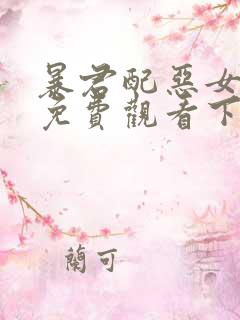 暴君配惡女
免費觀看下
蘭可